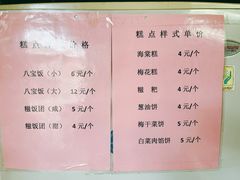 糕点 价格
八宝饭（小） 6 元/个
八宝饭（大） 12 元/个
糍饭团（咸） 5 元/个
糍饭团（甜） 4 元/个
糕点样式单价
海棠糕 4 元/个
梅花糕 4 元/个
糍粑 4 元/个
葱油饼 4 元/个
梅干菜饼 5 元/个
白菜肉馅饼 5 元/个